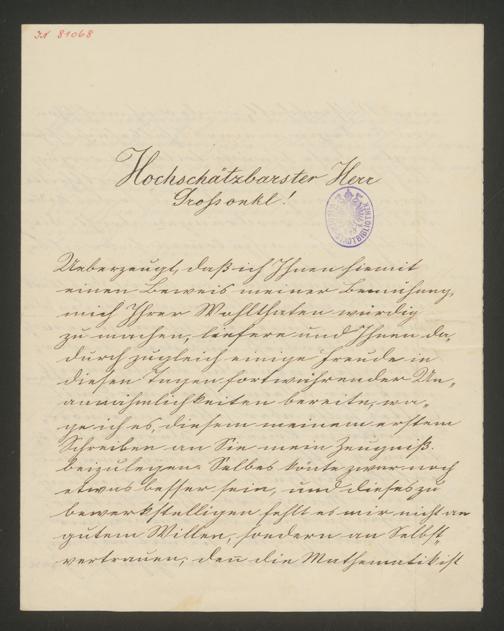 IN 81068
Hochschätzbarster Herr
Grossonkl!
STADTBIBLIOTHEK
Ueberzeugt, daß ich Ihnen hiemit
einen Beweis meiner Bemühung,
mich Ihrer Wohlthaten würdig
zu machen, liefere und Ihnen da,
durch zugleich einige Freude in
diesen Tagen fortwährender Un,
annähmlichkeiten bereite, wa,
ge ich es, diesem meinem erstem
Schreiben an Sie mein Zeugniß
beizulegen. Selbes könte zwar noch
etwas besser sein, und dieses zu
bewerkstelligen fehlt es mir nicht an
gutem Willen, sondern an Selbst,
vertrauen; den die Mathematik ist